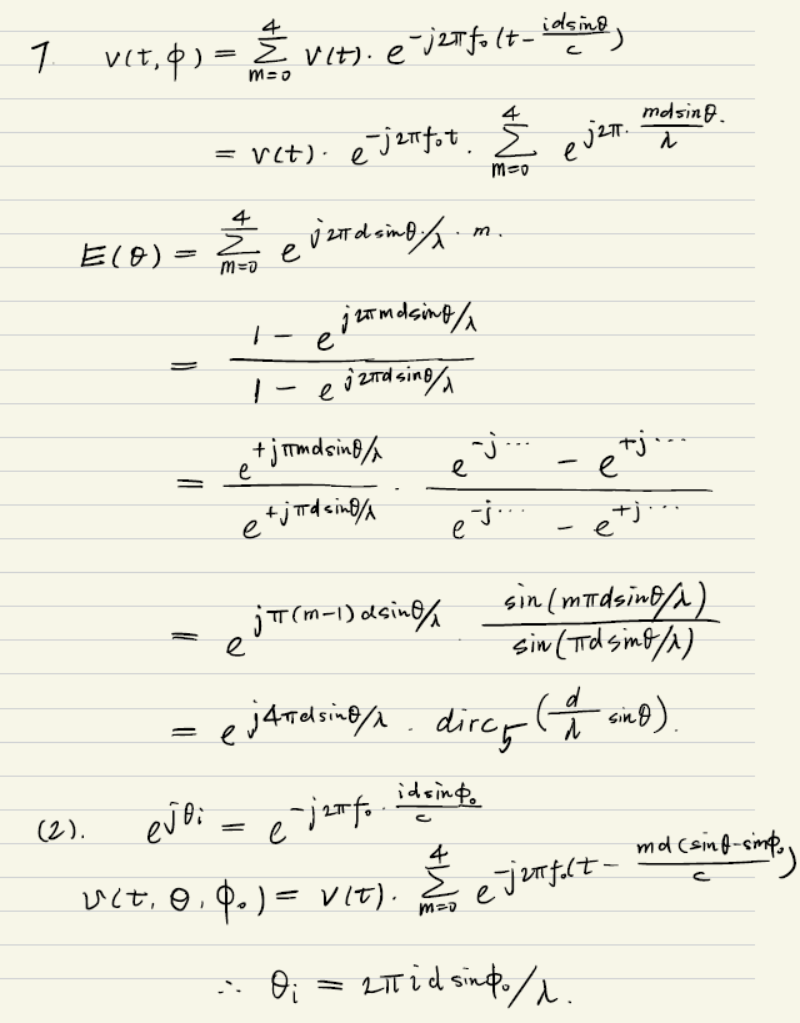 7. v(t,ϕ) = \sum_{m=0}^{4} v(t)· e^{-j2πf₀(t - \frac{idsinθ}{c})}
= v(t)· e^{-j2πf₀t} · \sum_{m=0}^{4} e^{j2π· \frac{mdsinθ}{λ}}.
E(θ) = \sum_{m=0}^{4} e^{j2πdsinθ/λ · m}.
= \frac{1 - e^{j2πmdsinθ/λ}}{1 - e^{j2πdsinθ/λ}}
= \frac{e^{+jπmdsinθ/λ}}{e^{+jπdsinθ/λ}} · \frac{e^{-j···} - e^{+j···}}{e^{-j···} - e^{+j···}}
= e^{jπ(m-1)dsinθ/λ} \frac{sin(mπdsinθ/λ)}{sin(πdsinθ/λ)}
= e^{j4πdsinθ/λ} · dirc₅(\frac{d}{λ} sinθ).
(2). e^{jθ_i} = e^{-j2πf₀· \frac{idsinϕ₀}{c}}
v(t, θ, ϕ₀) = v(t)· \sum_{m=0}^{4} e^{-j2πf₀(t - \frac{md(sinθ-sinϕ₀}{c})}
∴ θ_i = 2πidsinϕ₀/λ.